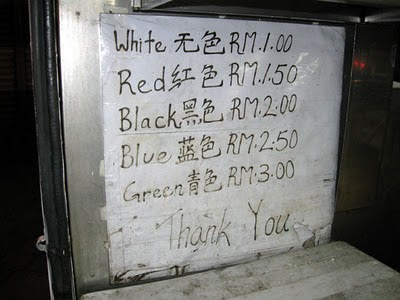 White 无色 RM.1.00
Red 红色 RM.1.50
Black 黑色 RM.2.00
Blue 蓝色 RM.2.50
Green 青色 RM.3.00
Thank You